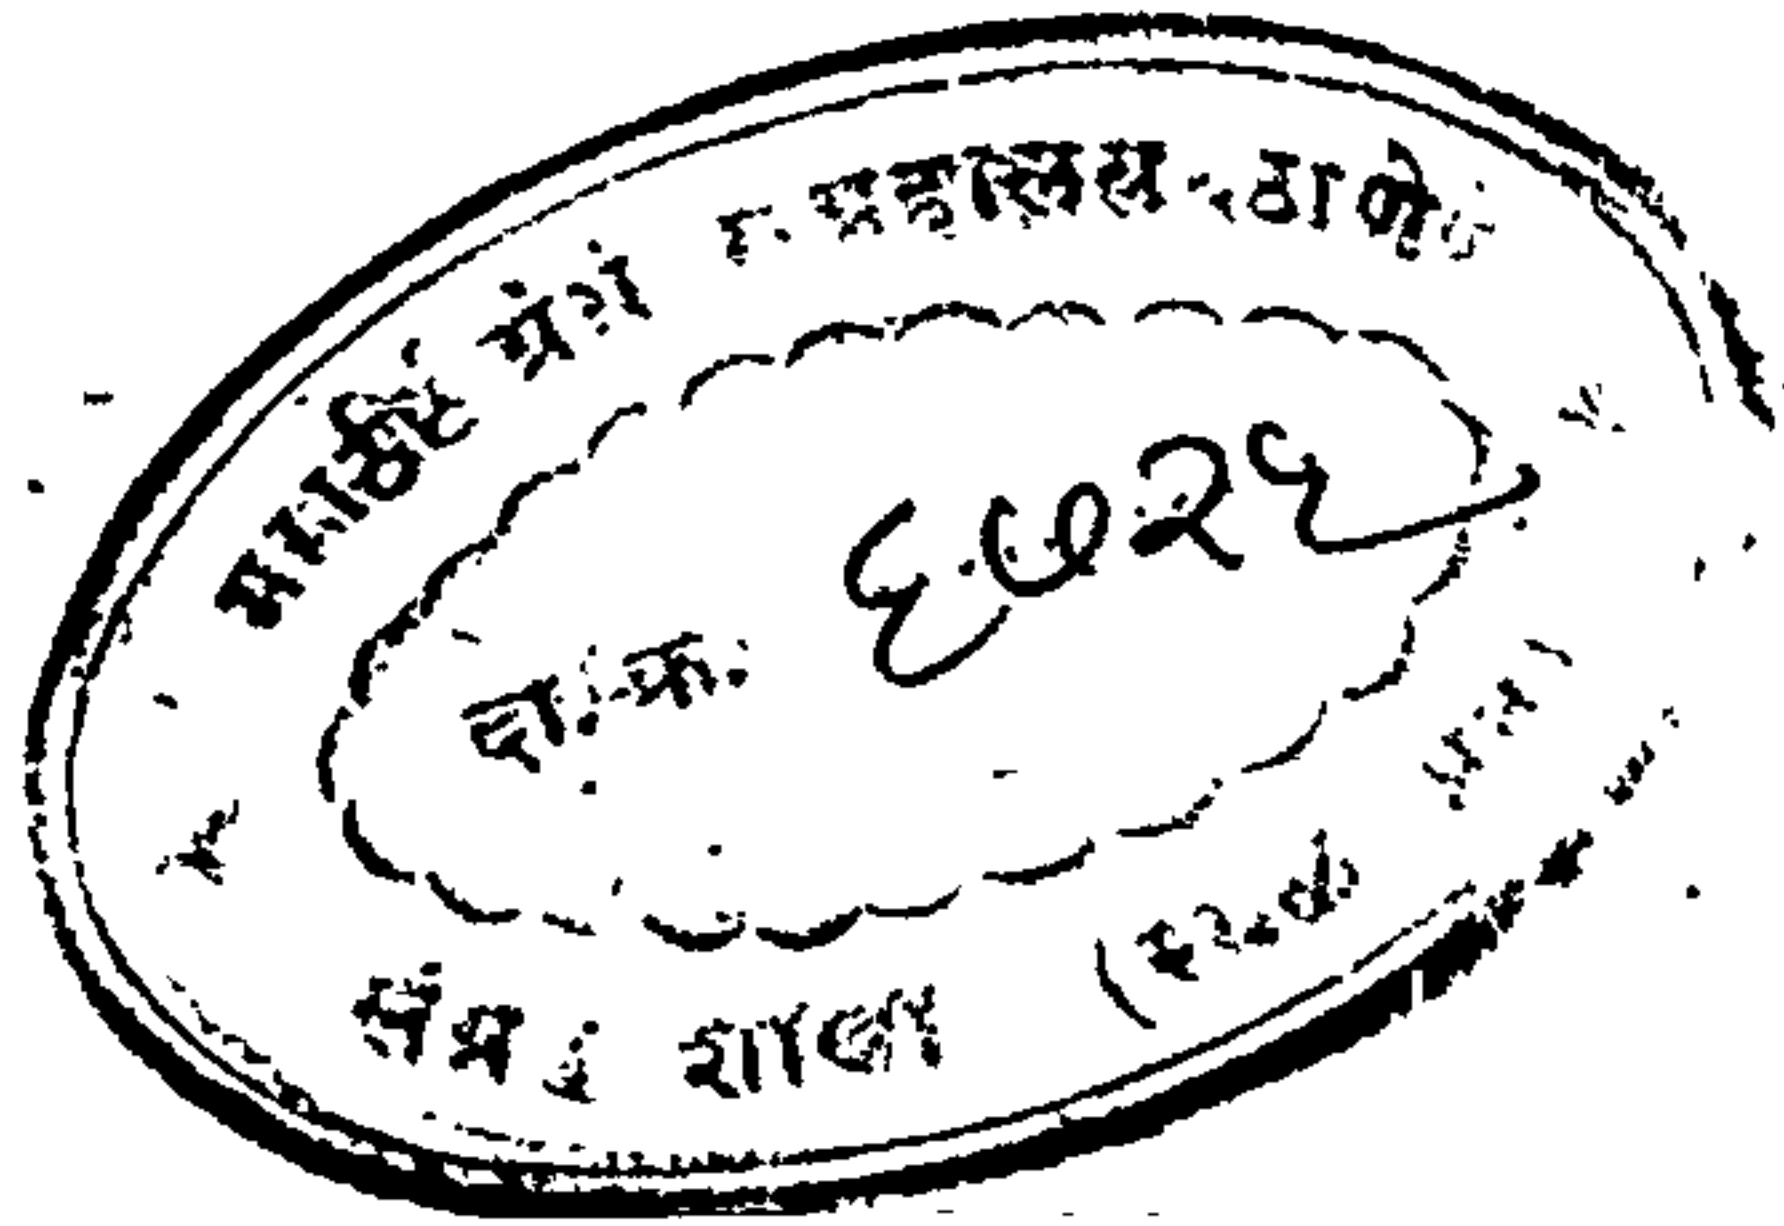 मराठी ग्रंथ संग्रहालय ठाणे
दा. क्र. ६७२६
संग्रह शाला